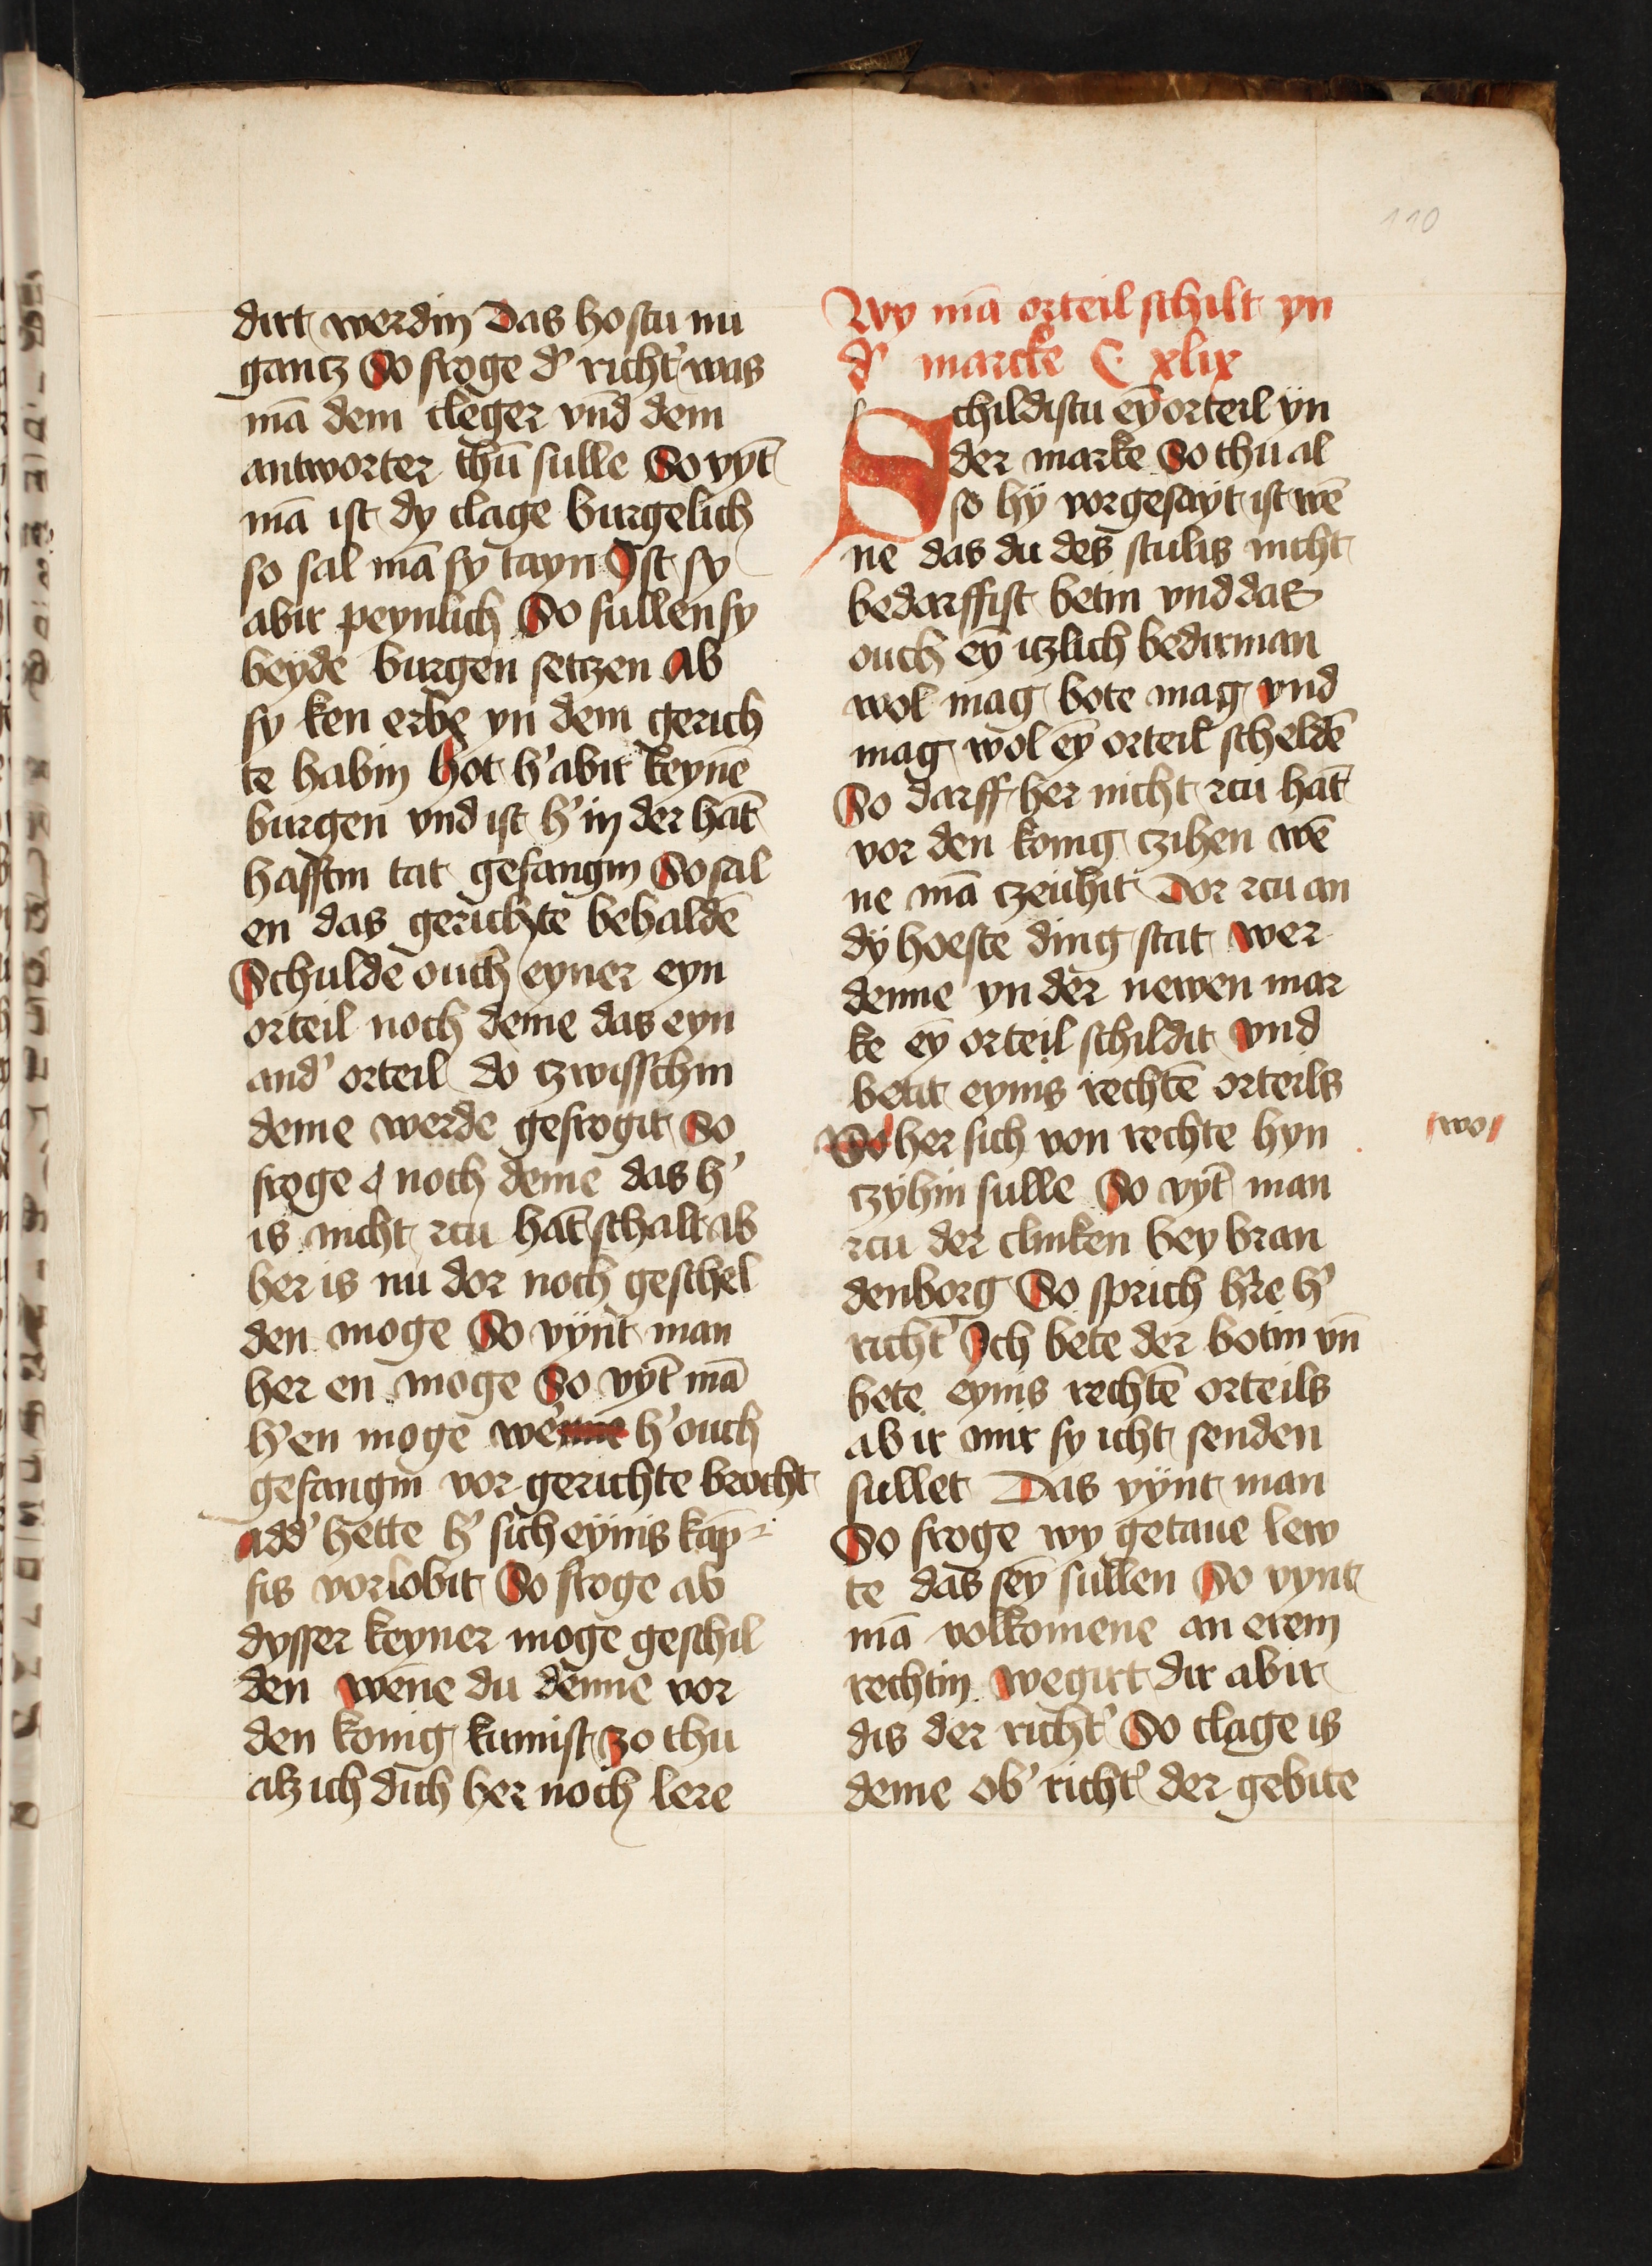 110
dirt werdin Das hostu nu
gantz So froge d' richt' was
mā dem cleger vnd dem
antworter thū sulle So vyt̄
mā ist dy clage burgelich
so sal mā sy tayn Ist sy
abir peynlich So sullen sy
beyde burgen setczen Ab
sy ken erbe yn dem gerich
te habin hot h' abir keynē
burgen vnd ist h' in der hāt
hafftin tat gefangin So sal
en das gerichte behaldē
Schulde ouch eyner eyn
orteil noch deme das eyn
and' orteil do czwisschin
deme werde gefrogit So
froge noch deme das h'
is nicht zcu hāt schalt ab
her is nu dor noch geschel
den moge So vynt man
her en moge So vyt̄ mā
h' en moge wē h' ouch
gefangin vor gerichte brocht
add' hette h' sich eynis kāp
fis vorlobit So froge ab
dysser keyner moge geschil
den wēne du denne vor
den konig kumist zo thu
alz ich dich her noch lere
Wy mā orteil schilt yn
d' marcke C xlix
Schildistu eȳ orteil yn
der marke So thu al
so hy vorgesayt ist wē
ne das du des stulis nicht
bedarffist betin vnd das
ouch eȳ itzlich bedirman
wol mag bote mag vnd
mag wol eȳ orteil scheldē
So darff her nicht zcu hāt
vor den konig czihen wē
ne mā czeuhit Dor zcu an
dy hoeste ding stat wer
denne yn der newen mar
ke eȳ orteil schildit vnd
betit eynis rechtē orteils
wo
Wo her sich von rechte hyn
czyhin sulle So vyt̄ man
zcu der clinken bey bran
denborg So sprich h're h'
richt' Ich bete der botin vn̄
bete eynis rechtē orteils
ab ir mir sy icht senden
sullet Das vynt man
So froge wy getane lew
te das seȳ sullen So vynt
mā volkomene an erem
rechtin wegirt dir abir
dis der richt' So clage is
deme ob' richt' der gebite